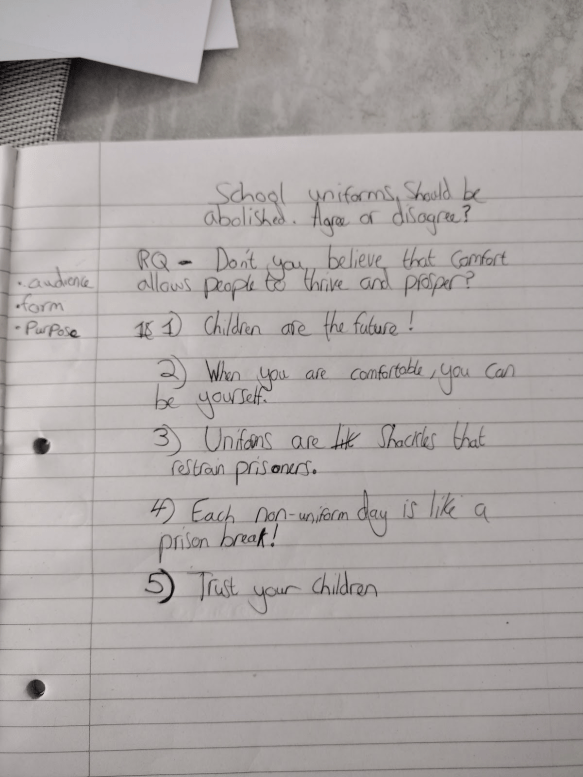 School uniforms, Should be
abolished. Agree or disagree?
RQ - Don't you believe that comfort
allows people to thrive and prosper?
• audience
• form
• Purpose
1) Children are the future!
2) When you are comfortable, you can
be yourself.
3) Uniforms are Shackles that
restrain prisoners.
4) Each non-uniform day is like a
prison break!
5) Trust your children